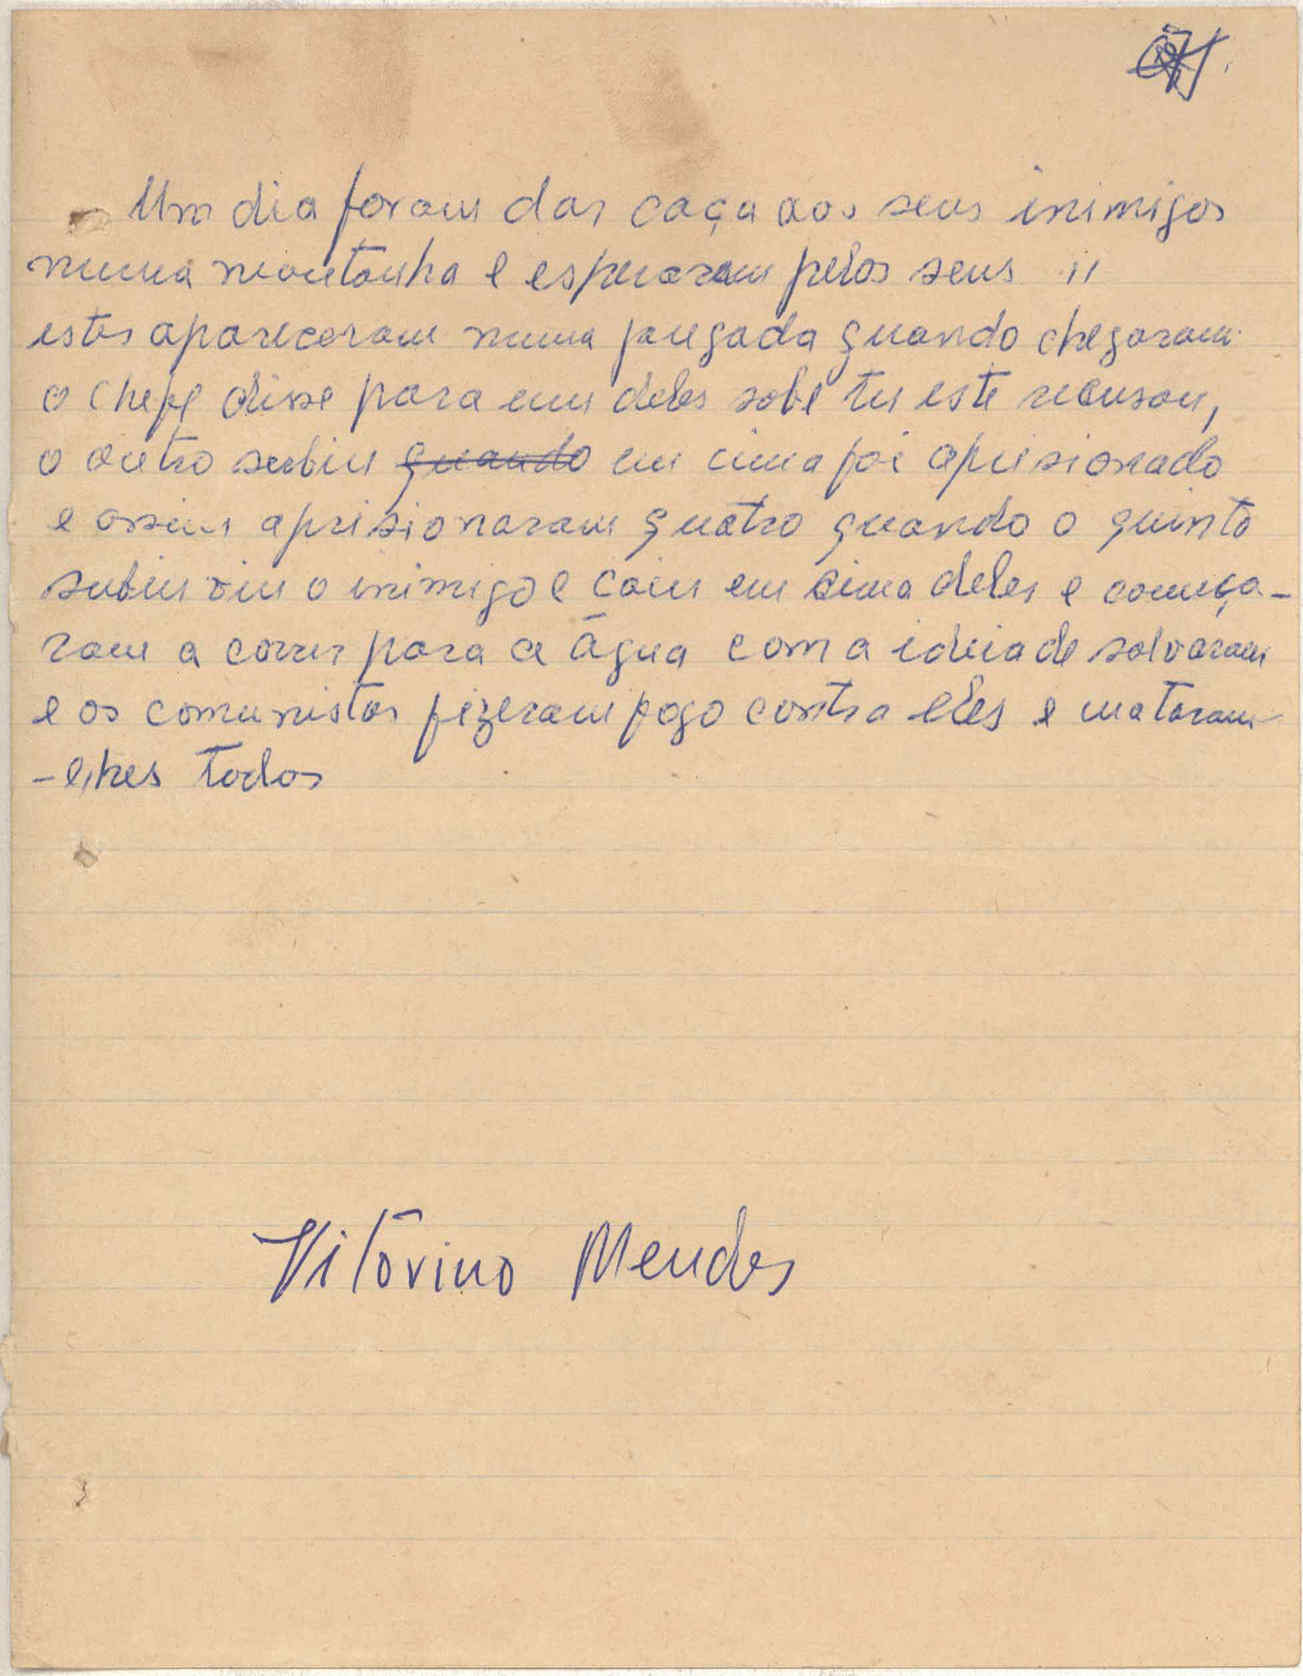 Um dia foram dar caça aos seus inimigos
numa montanha e esperaram pelos seus "
estes apareceram numa jangada quando chegaram
o chefe disse para um deles sobe tu este recusou,
o outro subiu quando em cima foi aprisionado
e assim aprisionaram quatro quando o quinto
subiu viu o inimigo e caiu em cima deles e começa-
ram a correr para a água com a ideia de salvaram
e os comunistas fizeram fogo contra eles e mataram
-lhes todos
Vitòrino Mendes